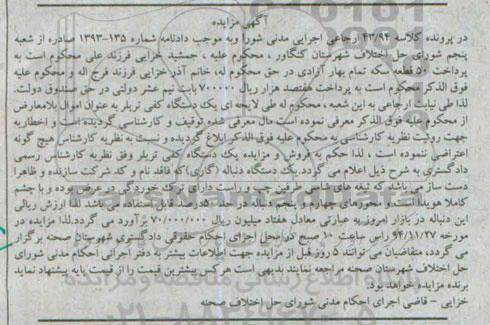 آگهی مزایده
در پرونده کلاسه ۴۳/۹۴ ارجاعی اجرایی مدنی شورا وبه موجب دادنامه شماره ۱۳۵-۱۳۹۳ صادره از شعبه
پنجم شورای حل اختلاف شهرستان کنگاور ، محکوم علیه ، جمشید خزایی فرزند علی محکوم است به
پرداخت ۵۰ قطعه سکه تمام بهار آزادی در حق محکوم له، خانم آذر خزایی فرزند فرج اله و محکوم علیه
فوق الذکر محکوم است به پرداخت هفتصد هزار ریال ۷۰۰۰۰۰ بابت نیم عشر دولتی در حق صندوق دولت.
لذا طی نیابت ارجاعی به این شعبه، محکوم له طی لایحه ای یک دستگاه کفی تریلر به عنوان اموال بلامعارض
از محکوم علیه فوق الذکر معرفی نموده است مال معرفی شده توقیف و کارشناسی گردیده است و اخطاریه
جهت رویت نظریه کارشناسی به محکوم علیه فوق الذکر ابلاغ گردیده و نسبت به نظریه کارشناس هیچ گونه
اعتراضی ننموده است ، لذا حکم به فروش و مزایده یک دستگاه کفی تریلر وفق نظریه کارشناس رسمی
دادگستری به شرح ذیل اعلام می گردد.یک دستگاه دنباله (گاری)که فاقد نام و کد شرکت سازنده و ظاهرا
دست ساز می باشد که تیغه های شاسی طرفین چپ و راست دارای ترک خوردگی در عرض بوده و با چشم
کاملا هویدا است و محورهای چهارم و پنجم دنباله در حد ۵۰درصد قابل استفاده می باشد لذا ارزش ریالی
این دنباله در بازار امروز به عبارتی معادل هفتاد میلیون ریال ۷۰/۰۰۰/۰۰۰ برآورد می گردد.لذا مزایده در
مورخه ۹۴/۱۱/۲۷ راس ساعت ۱۰ صبح در محل اجرای احکام حقوقی دادگستری شهرستان صحنه برگزار
می گردد، متقاضیان می توانند ۵ روز قبل از مزایده جهت اطلاعات بیشتر به دفتر اجرائی احکام مدنی شورای
حل اختلاف شهرستان صحنه مراجعه نمایند بدیهی است هر کس بیشترین قیمت را از قیمت پایه پیشنهاد نماید
برنده مزایده خواهد بود.
خزایی - قاضی اجرای احکام مدنی شورای حل اختلاف صحنه